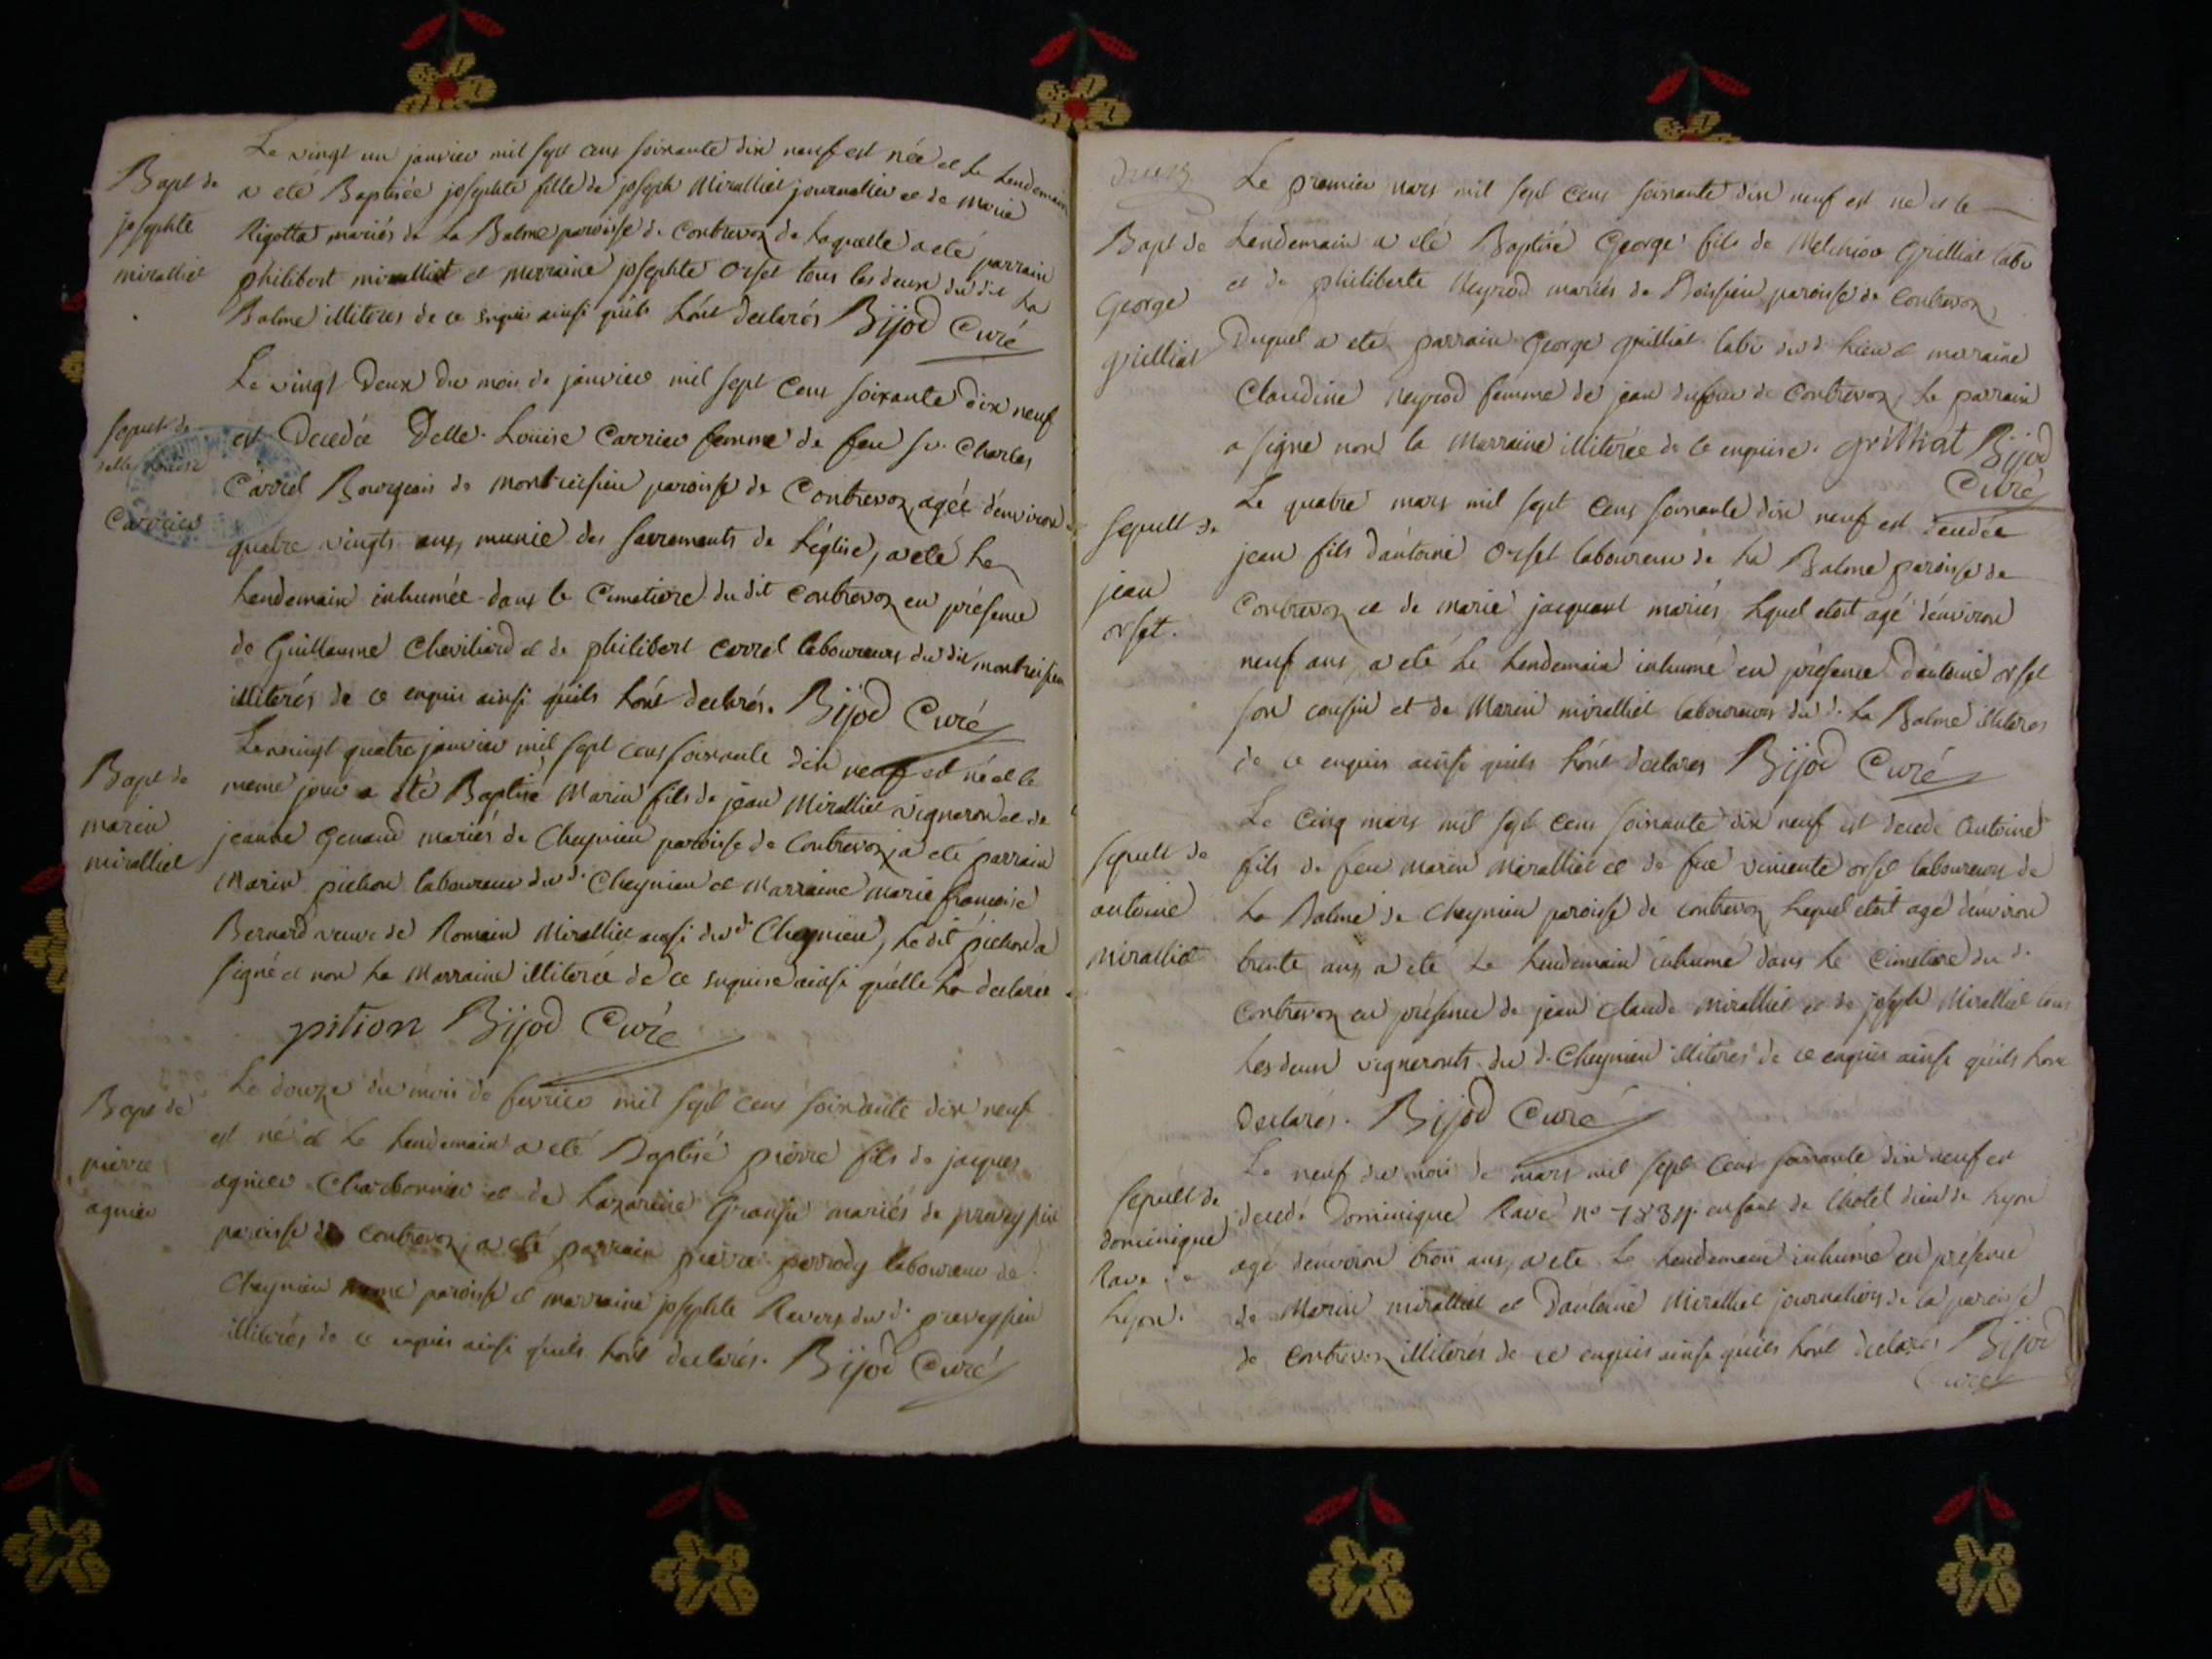 Le vingt un janvier mil sept cens soixante dix neuf est née et le Lendemain
Bapt de
a eté Baptisée josephte fille de joseph Miralliet journalier et de Marie
josephte
Rigottar mariés de La Balme paroisse de Contrevoz de Laquelle a eté parrain
miralliet
philibert miralliet et marraine josephte Orset tous les deux du dit La
Balme illiteres de ce enquis ainsi quils Lont declarés Bijod Curé
Le vingt Deux du mois de janvier mil sept cens soixante dix neuf
sepult de
est Decedée Delle. Louise Carrier femme de feu sr. Charles
delle Louise
Carrel Bourgeois de montreisieu paroisse de Contrevoz, agée d'environ
Carrier
quatre vingts ans, munie des sacrements de L'église, a eté Le
Lendemain inhumée dans le Cimetiere du dit Contrevoz en présence
de Guillaume Cheviliard et de philibert Carrel laboureurs du dit montreisieu
illiterés de ce enquis ainsi quils Lont declarés. Bijod Curé
Le vingt quatre janvier mil sept cens soixante dix neuf est né et le
Bapt de
meme jour a eté Baptisé Marin fils de jean Miralliet vigneron et de
marin
jeanne Genaud mariés de Cheynieu paroisse de Contrevoz, a eté parrain
miralliet
Marin pichon laboureur du d. Cheynieu et Marraine marie francoise
Bernard veuve de Romain Miralliet aussi du d. Cheynieu, Le dit pichon a
signé et non La Marraine illiterée de ce enquise ainsi quelle La declarée
pition Bijod Curé
Le douze du mois de fevrier mil sept cens soixante dix neuf
Bapt de
est né et Le Lendemain a eté Baptisé pierre fils de jacques
pierre
agnier Charbonnier et de Lazarine Gransie mariés de preveyssieu
agnier
paroisse de Contrevoz, a eté parrain pierre perrody laboureur de
Cheynieu meme paroisse et marraine josephte Ravers du d. preveyssieu
illiterés de ce enquis ainsi quils Lont declarés. Bijod Curé
Le premier mars mil sept cens soixante dix neuf est né et le
Bapt de
Lendemain a eté Baptisé George fils de Melchior Grilliat labr
George
et de philiberte Neyrod mariés de Boissieu paroisse de Contrevoz
grilliat
Duquel a eté parrain George grilliat labr du d. Lieu et marraine
Claudine Neyrod femme de jean dufour de Contrevoz, Le parrain
a signé non la Marraine illiterée de ce enquise. grilliat Bijod
Curé
Le quatre mars mil sept cens soixante dix neuf est decedée
sepult de
jean fils d'antoine Orset laboureur de La Balme paroisse de
jean
Contrevoz et de marie jacquant mariés, Lequel etoit agé d'environ
orset.
neuf ans, a eté Le Lendemain inhumé en présence d'antoine orset
son cousin et de Marin miralliet laboureurs du d. La Balme illiteres
de ce enquis ainsi quils Lont declarés Bijod Curé
Le cinq mars mil sept cens soixante dix neuf est decedé Antoine
sepult de
fils de feu Marin Miralliet et de feue vincente orset laboureurs de
antoine
La Balme de Cheynieu paroisse de Contrevoz, Lequel etoit agé d'environ
Miralliet
trente ans, a eté Le Lendemain inhumé dans Le Cimetiere du d.
Contrevoz en présence de jean Claude Miralliet et de joseph Miralliet tous
Les deux vignerons du d. Cheynieu illiterés de ce enquis ainsi quils Lont
Declarés. Bijod Curé
Le neuf du mois de mars mil sept cens soixante dix neuf est
sepult de
decedé Dominique Ravé no 1834 enfant de L'hotel dieu de Lyon
dominique
agé d'environ trois ans, a eté Le Lendemain inhumé en présence
Ravé de
de Marin miralliet et D'antoine Miralliet journaliers de la paroisse
Lyon.
de Contrevoz illiterés de ce enquis ainsi quils Lont declarés Bijod
Curé